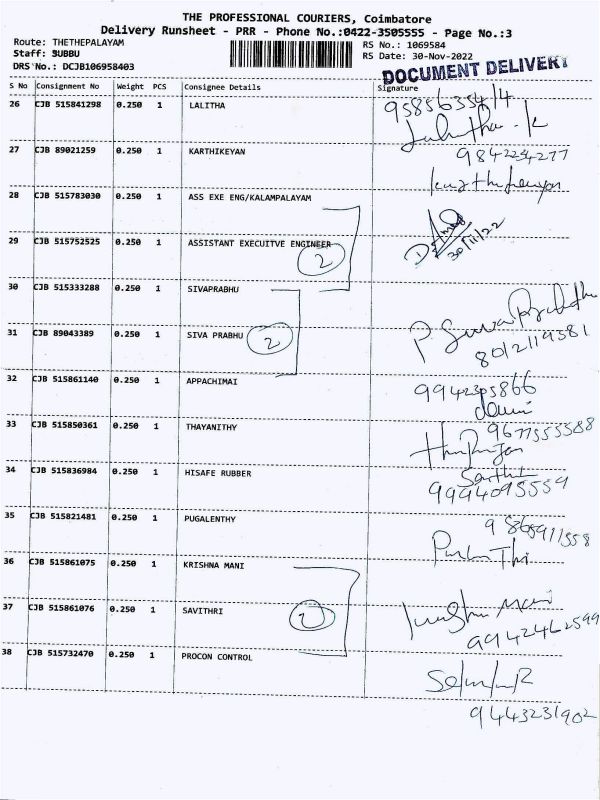 THE PROFESSIONAL COURIERS, Coimbatore
Delivery Runsheet - PRR - Phone No.:0422-3505555 - Page No.:3
Route: THETHEPALAYAM RS No.: 1069584
Staff: SUBBU RS Date: 30-Nov-2022
DRS No.: DCJB106958403 DOCUMENT DELIVERY
S No Consignment No Weight PCS Consignee Details Signature
26 CJB 515841298 0.250 1 LALITHA
27 CJB 89021259 0.250 1 KARTHIKEYAN 9842234277
28 CJB 515783030 0.250 1 ASS EXE ENG/KALAMPALAYAM
29 CJB 515752525 0.250 1 ASSISTANT EXECUITVE ENGINEER 2 30/11/22
30 CJB 515333288 0.250 1 SIVAPRABHU
31 CJB 89043389 0.250 1 SIVA PRABHU 2 8012119381
32 CJB 515861140 0.250 1 APPACHIMAI
33 CJB 515850361 0.250 1 THAYANITHY 9677555588
34 CJB 515836984 0.250 1 HISAFE RUBBER
9994095559
35 CJB 515821481 0.250 1 PUGALENTHY
36 CJB 515861075 0.250 1 KRISHNA MANI
37 CJB 515861076 0.250 1 SAVITHRI
9942462599
38 CJB 515732470 0.250 1 PROCON CONTROL
9443231902